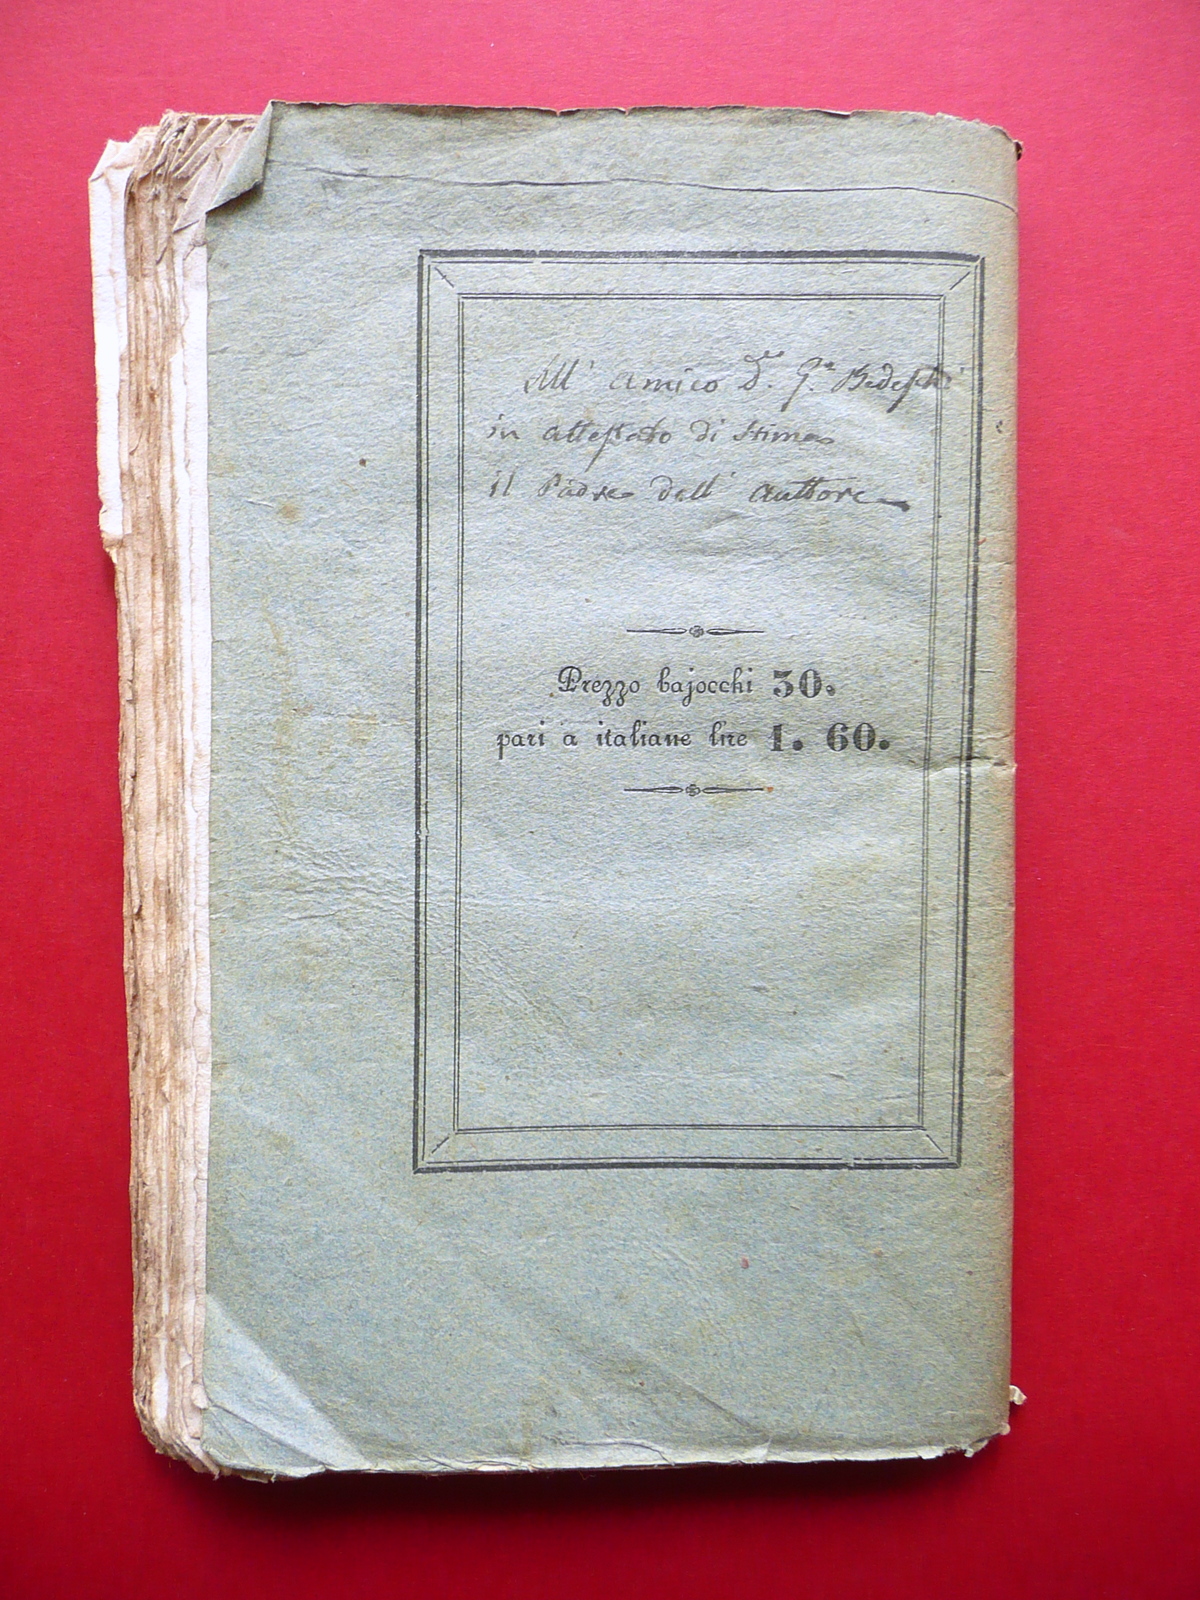 All' amico D.r G.e Bedeschi
in attestato di stima
il Padre dell' auttore
Prezzo bajocchi 30.
pari a italiane lire 1. 60.